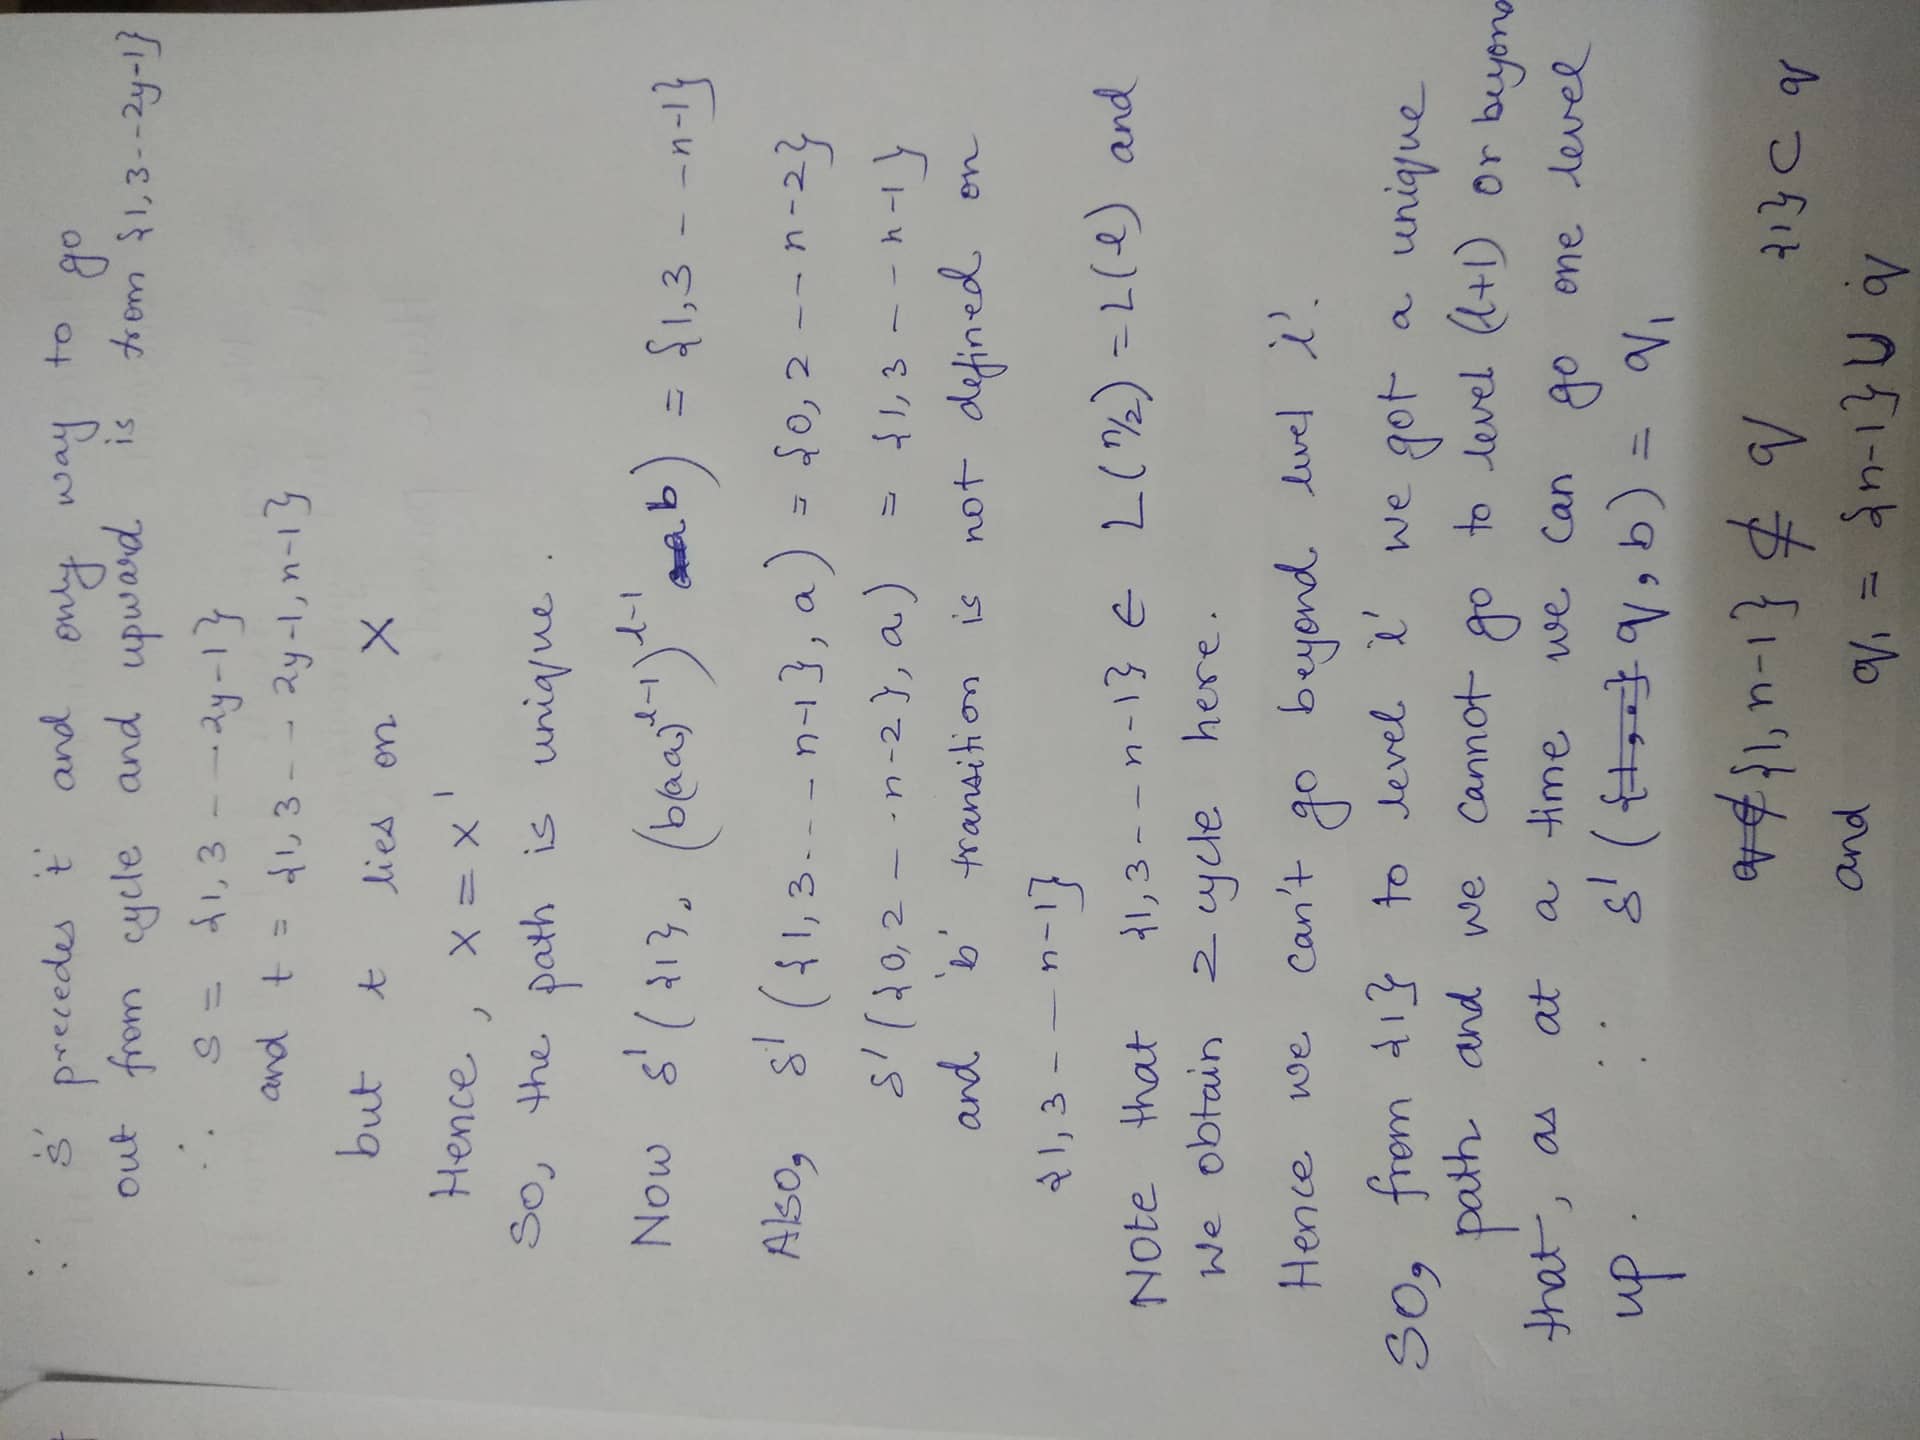 ∴ 's' precedes 't' and only way to go
out from cycle and upward is from {1,3--2y-1}
∴ s = {1,3---2y-1}
and t = {1,3--2y-1,n-1}
but t lies on X
Hence, X = X'
So, the path is unique.
Now δ'({1}, (b(aa)^{l-1})^{l-1} b) = {1,3---n-1}
Also, δ'({1,3---n-1}, a) = {0,2---n-2}
δ'({0,2---n-2}, a) = {1,3---n-1}
and 'b' transition is not defined on
{1,3---n-1}
Note that {1,3---n-1} ∈ L(n/2) = L(l) and
we obtain 2 cycle here.
Hence we can't go beyond level 'l'.
So, from {1} to level 'l' we got a unique
path and we cannot go to level (l+1) or beyond
that, as at a time we can go one level
up. ∴ δ'(q, b) = q₁
{1,n-1} ⊄ q {1} ⊂ q
and q₁ = {n-1} ∪ q